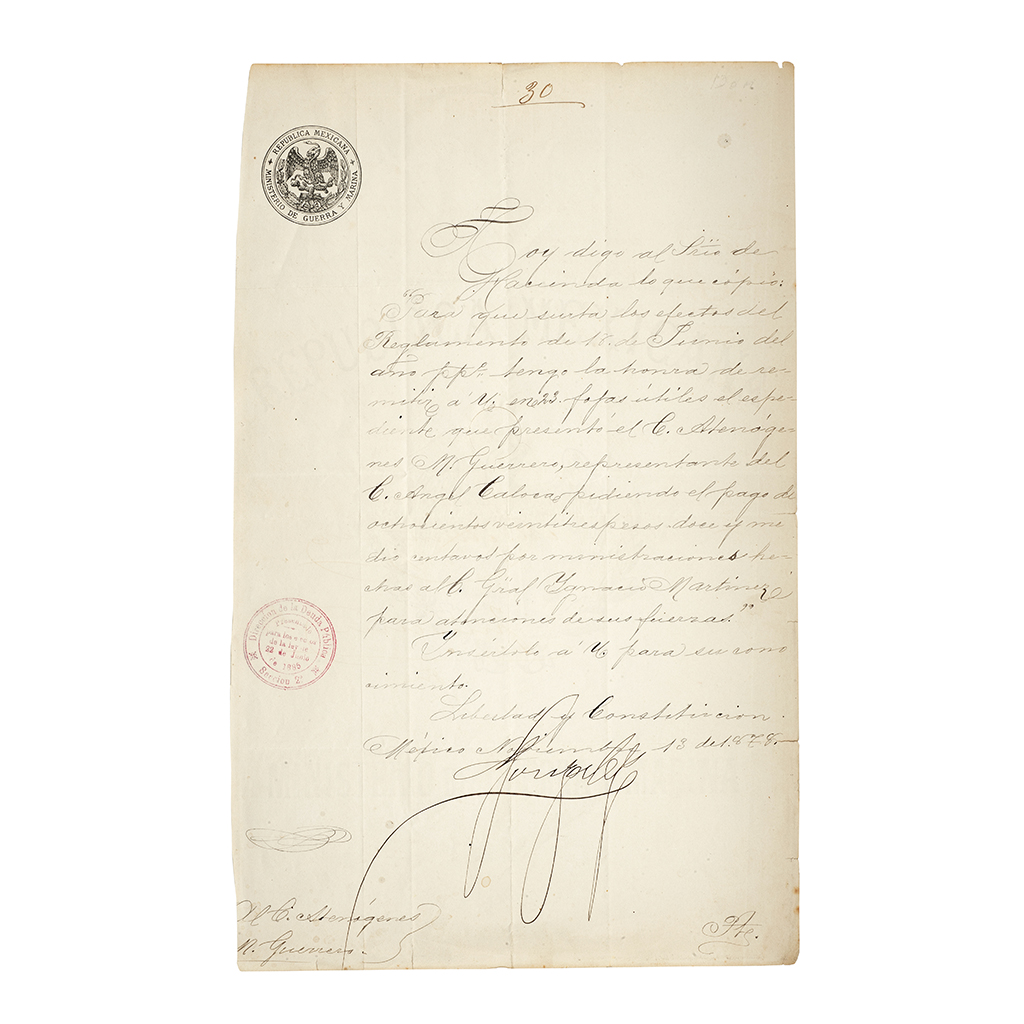 30
REPUBLICA MEXICANA
MINISTERIO DE GUERRA Y MARINA
Hoy digo al Srio de
Hacienda lo que cópio:
"Para que surta los efectos del
Reglamento de 18 de Junio del
año ppº tengo la honra de re-
mitir á U. en 23 fojas útiles el espe-
diente que presentó el C. Atenóge-
nes M. Guerrero, representante del
C. Angel Caloca, pidiendo el pago de
ochocientos veintitres pesos doce y me
dio centavos por ministraciones he-
chas al C. Gräl Ygnacio Martinez
para atenciones de sus fuerzas."
Dirección de la Deuda Pública
Presentado
para los efectos
de la ley de
22 de Junio
de 1885
Sección 2ª
Ynsértolo á U. para su cono
cimiento.
Libertad y Constitucion.
México Noviembre 13 de 1878.
Al C. Atenógenes
M. Guerrero.
Pte.